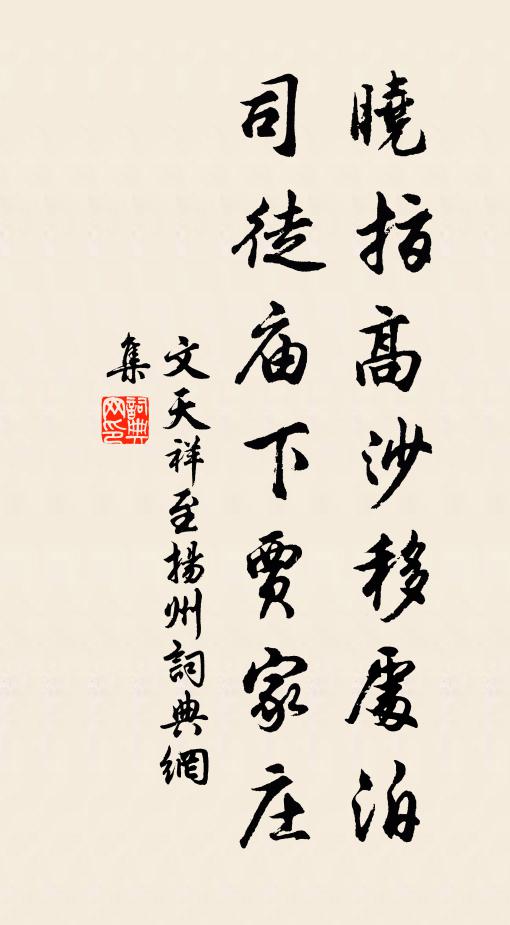 曉指高沙移處泊
司徒庙下賈家庄
文天祥至揚州詞典網
集
詞典网印